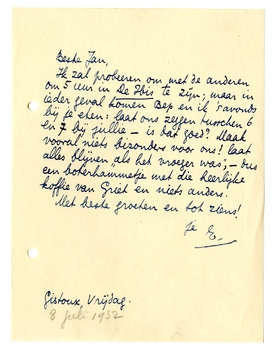 Beste Jan,
Ik zal probeeren om met de anderen
om 5 uur in De Ibis te zijn; maar in
ieder geval komen Bep en ik 's avonds
bij je eten: laat ons zeggen tusschen 6
en 7 bij jullie – is dat goed? Maak
vooral niets bezonders voor ons! laat
alles blijven als het vroeger was; – dus
een boterhammetje met die heerlijke
koffie van Griet en niets anders.
Met beste groeten en tot ziens!
Je E.
Gistoux, Vrijdag.
8 juli 1932